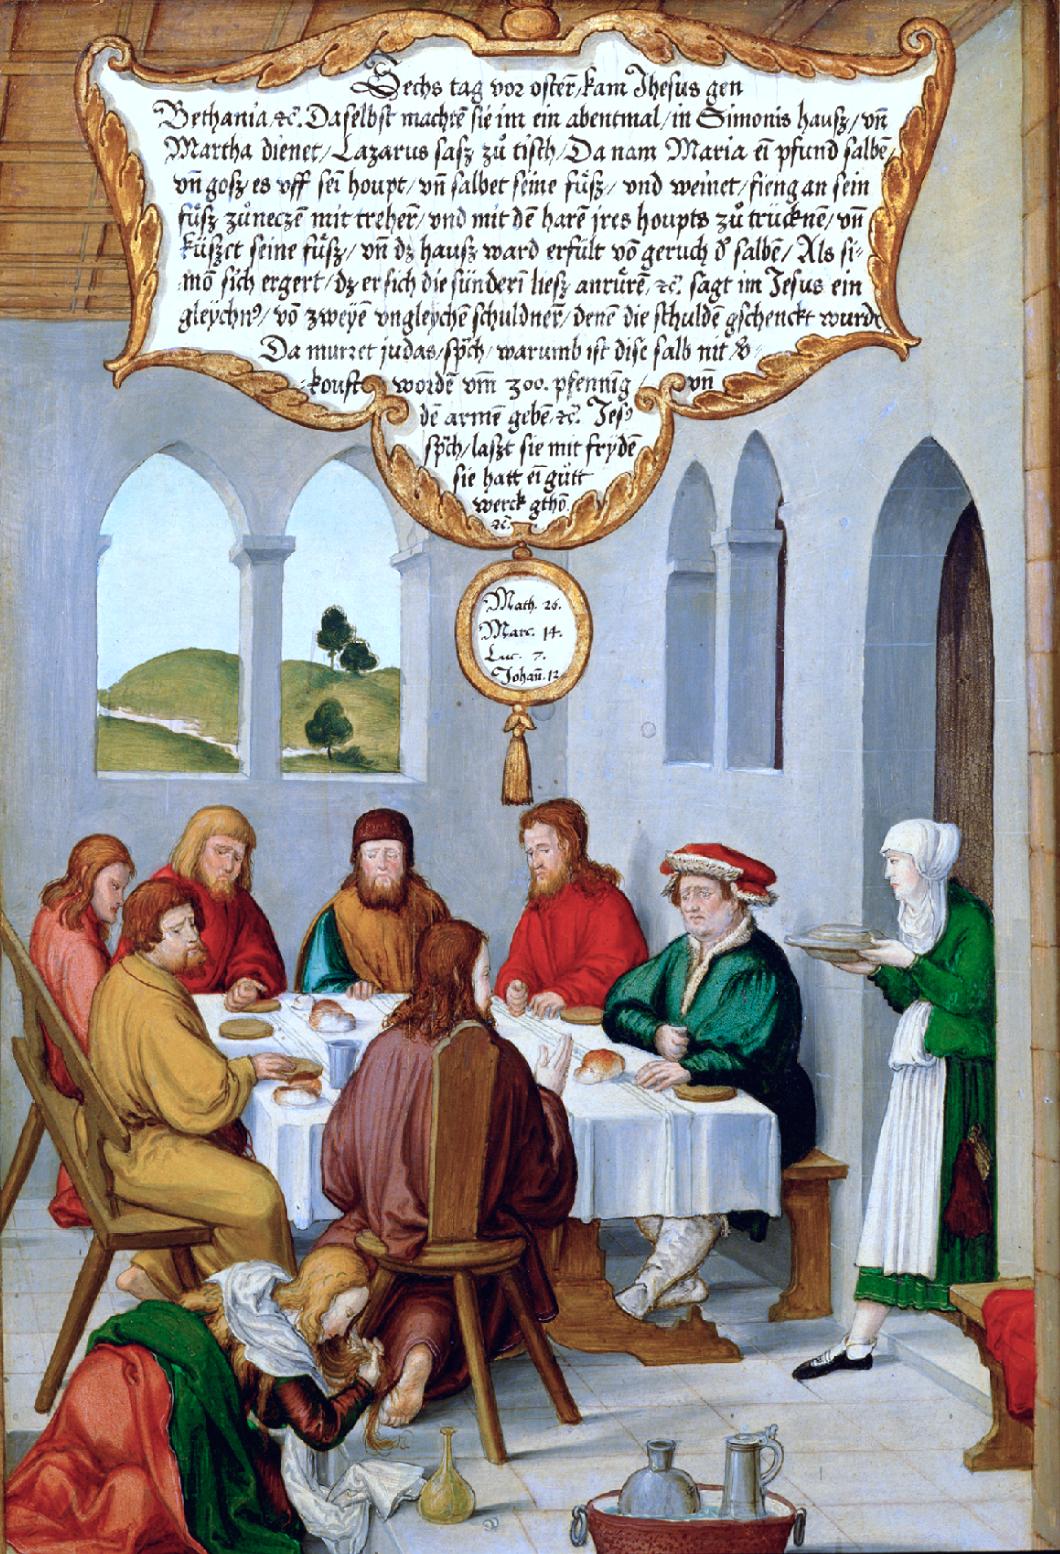 Sechs tag vor osterñ/kam Jhesus gen
Bethania/ꝛc. Daselbst machtẽ sie im ein abentmal/in Simonis hausz/vñ
Martha dienet/Lazarus sasz zuͦ tisch/Da nam Maria eĩ pfund salbẽ/
vñ gosz es vff seĩ houpt/vñ salbet seine fuͤsz/vnd weinet/fieng an sein
fuͤsz zuͦ neczẽ mit treherñ/vnd mit dẽ harẽ jres houpts zuͦ trücknẽ/vñ
küszet seine fuͤsz/vñ dz hausz ward erfült võ geruch der salbẽ/Als si-
mõ sich ergert/dz er sich die sünderĩ liesz anruͤrẽ, ꝛc. sagt im Jesus ein
gleychnꝰ/võ zweyẽ vngleychẽ schuldnerñ/denẽ die schuldẽ gschenckt wurdẽ
Da murret judas/sp̃ch/warumb ist dise salb nit v̾-
koufft wordẽ vm̃ 300. pfennig/vñ
dẽ armẽ gebẽ, ꝛc. Jesꝰ
sp̃ch/laszt sie mit frydẽ
sie hatt eĩ guͦtt
werck gthõ.
ꝛc.
Math. 26.
Marc. 14.
Luc. 7.
Johañ. 12